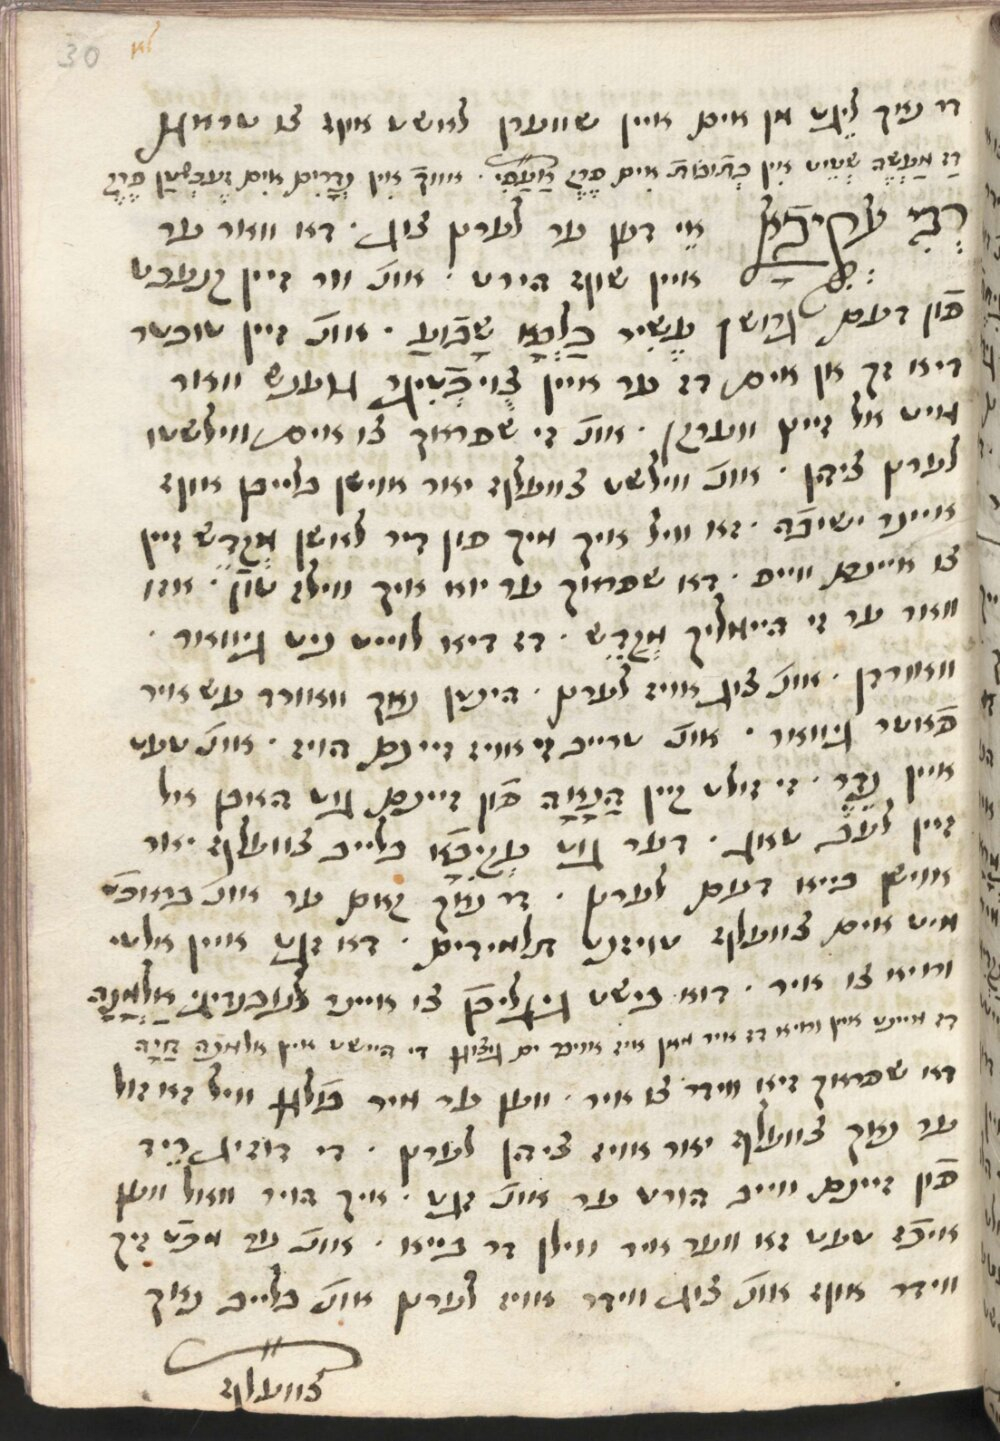 30 לא
דר נאך ליגט אן אים איין שווערן לאשט אונ' צו טראגן
דז מעשה שטייט אין כתובות אים פרק אף על פי. אויך אין נדרים אים פרק
רבי עקיבא איי דען ער לערנן צוג. דא וואר ער
איין שונ' הירט. אונ' וור זיין קנעכט
פון דעם גרושן עשיר כלבא שבוע. אונ' זיין טוכטר
דיא זך אן אים דז ער איין גענש וואר
אויש אים זיין ווערדן. אונ' זי שפראך צו אים ווילשטו
לערנן ציהן. אונ' ווילשט צוועלף יאר אוישן בלייבן אונ'
איינר ישיבה. זא וויל איך מיך פון דיר לאשן מקדש זיין
צו איינם ווייב. דא שפראך ער יוא איך ווילז טון. אזו
וואר ער זי היימליך מקדש. דז דיא לוייט ניט גיוואר.
ווארדן. אונ' צוג אויז לערנן. הינטן נאך ווארד עש איר
פאטר גיוואר. אונ' טרייב זי אויז זיינם הויז. אונ' טעט
איין נדר. זי זולט קיין הנאה פון זיינם גוט האבן אל
זיין לעב טאג. דער גוט עקיבא בלייב צוועלף יאר
אוישן בייא דעם לערנן. דר נאך קאם ער אונ' בראכט
מיט אים צוועלף טויזנט תלמידים. דא זגט איין אלטי
ורויא צו איר. דוא בישט גיגליכן צו איינר לעבנדיגי אלמנה
דא שפראך זיא ווידר צו איר. ווען ער מיר פולגן וויל זא זול
ער נאך צוועלף יאר אויז ציהן לערנן. די דוזיגי רייד
פון זיינם ווייב הורט ער אונ' זגט. איך הויר וואול ווען
איכז טעט זא ווער איר ווילן דר בייא. אונ' ער מכט זיך
ווידר אונ' אונ' צוג ווידר אויז לערנן אונ' בלייב נאך
צוועלף